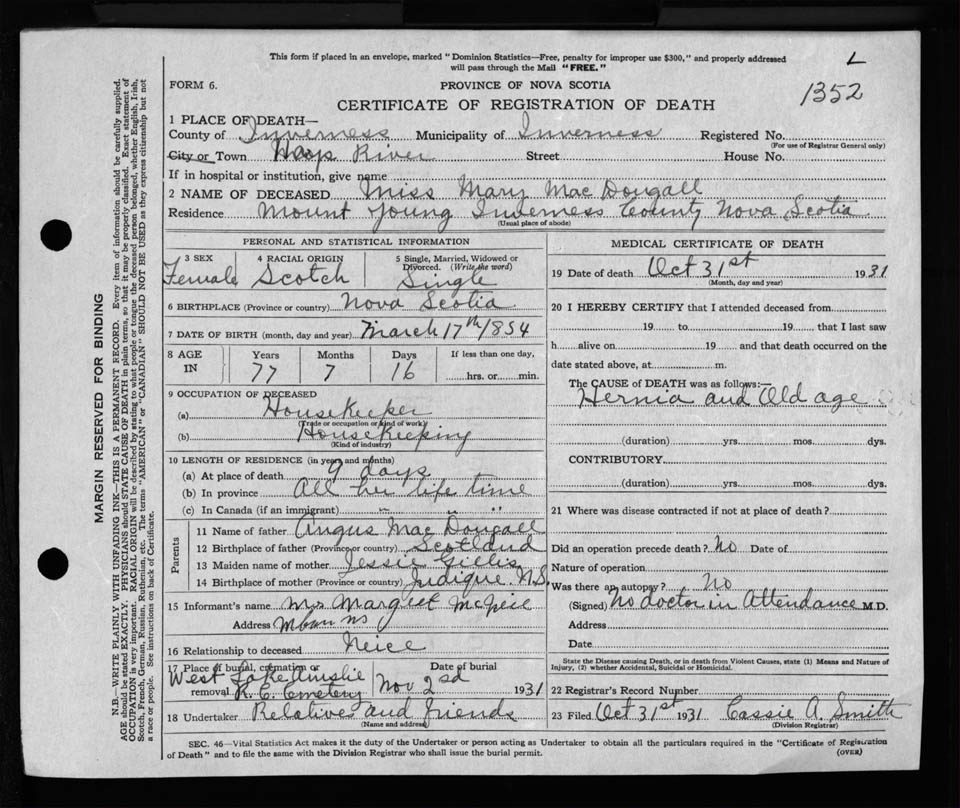 This form if placed in an envelope, marked "Dominion Statistics—Free, penalty for improper use $300," and properly addressed
will pass through the Mail "FREE."
L
FORM 6.
PROVINCE OF NOVA SCOTIA
1352
CERTIFICATE OF REGISTRATION OF DEATH
1 PLACE OF DEATH—
County of Inverness Municipality of Inverness Registered No.
(For use of Registrar General only)
City or Town Hays River Street House No.
If in hospital or institution, give name
2 NAME OF DECEASED Miss Mary MacDougall
Residence Mount Young Inverness County Nova Scotia
(Usual place of abode)
PERSONAL AND STATISTICAL INFORMATION
3 SEX 4 RACIAL ORIGIN 5 Single, Married, Widowed or
Divorced. (Write the word)
Female Scotch Single
6 BIRTHPLACE (Province or country) Nova Scotia
7 DATE OF BIRTH (month, day and year) March 17th 1854
8 AGE IN Years Months Days If less than one day,
77 7 16 hrs. or min.
9 OCCUPATION OF DECEASED
(a) Housekeeper
(Trade or occupation or kind of work)
(b) Housekeeping
(Kind of industry)
10 LENGTH OF RESIDENCE (in years and months)
(a) At place of death 9 days
(b) In province All her life time
(c) In Canada (if an immigrant) " "
Parents
11 Name of father Angus MacDougall
12 Birthplace of father (Province or country) Scotland
13 Maiden name of mother Jessie Gillis
14 Birthplace of mother (Province or country) Judique. N.S.
15 Informant's name Mrs Margret McNeil
Address
16 Relationship to deceased Neice
17 Place of burial, cremation or Date of burial
West Lake Ainslie
removal R. C. Cemetery Nov 2sd 1931
18 Undertaker Relatives and friends
(Name and address)
MEDICAL CERTIFICATE OF DEATH
19 Date of death Oct 31st 1931
(Month, day and year)
20 I HEREBY CERTIFY that I attended deceased from
19 to 19 , that I last saw
h alive on 19 and that death occurred on the
date stated above, at m.
The CAUSE of DEATH was as follows:—
Hernia and Old age
(duration) yrs. mos. dys.
CONTRIBUTORY
(duration) yrs. mos. dys.
21 Where was disease contracted if not at place of death?
Did an operation precede death? No Date of
Nature of operation
Was there an autopsy? No
(Signed) No doctor in Attendance M.D.
Address
Date
State the Disease causing Death, or in death from Violent Causes, state (1) Means and Nature of
Injury, (2) whether Accidental, Suicidal or Homicidal.
22 Registrar's Record Number
23 Filed Oct 31st 1931 Cassie A. Smith
(Division Registrar)
SEC. 46—Vital Statistics Act makes it the duty of the Undertaker or person acting as Undertaker to obtain all the particulars required in the "Certificate of Registration
of Death" and to file the same with the Division Registrar who shall issue the burial permit.
(OVER)
MARGIN RESERVED FOR BINDING
N.B.—WRITE PLAINLY WITH UNFADING INK—THIS IS A PERMANENT RECORD. Every item of information should be carefully supplied.
AGE should be stated EXACTLY. PHYSICIANS should STATE CAUSE OF DEATH in plain terms, so that it may be properly classified. Exact statement of
OCCUPATION is very important. RACIAL ORIGIN will be described by stating to what people or tongue the deceased person belonged, whether English, Irish,
Scotch, French, German, Russian, Ruthenian, etc. The terms "AMERICAN" or "CANADIAN" SHOULD NOT BE USED as they express citizenship but not
a race or people. See instructions on back of Certificate.